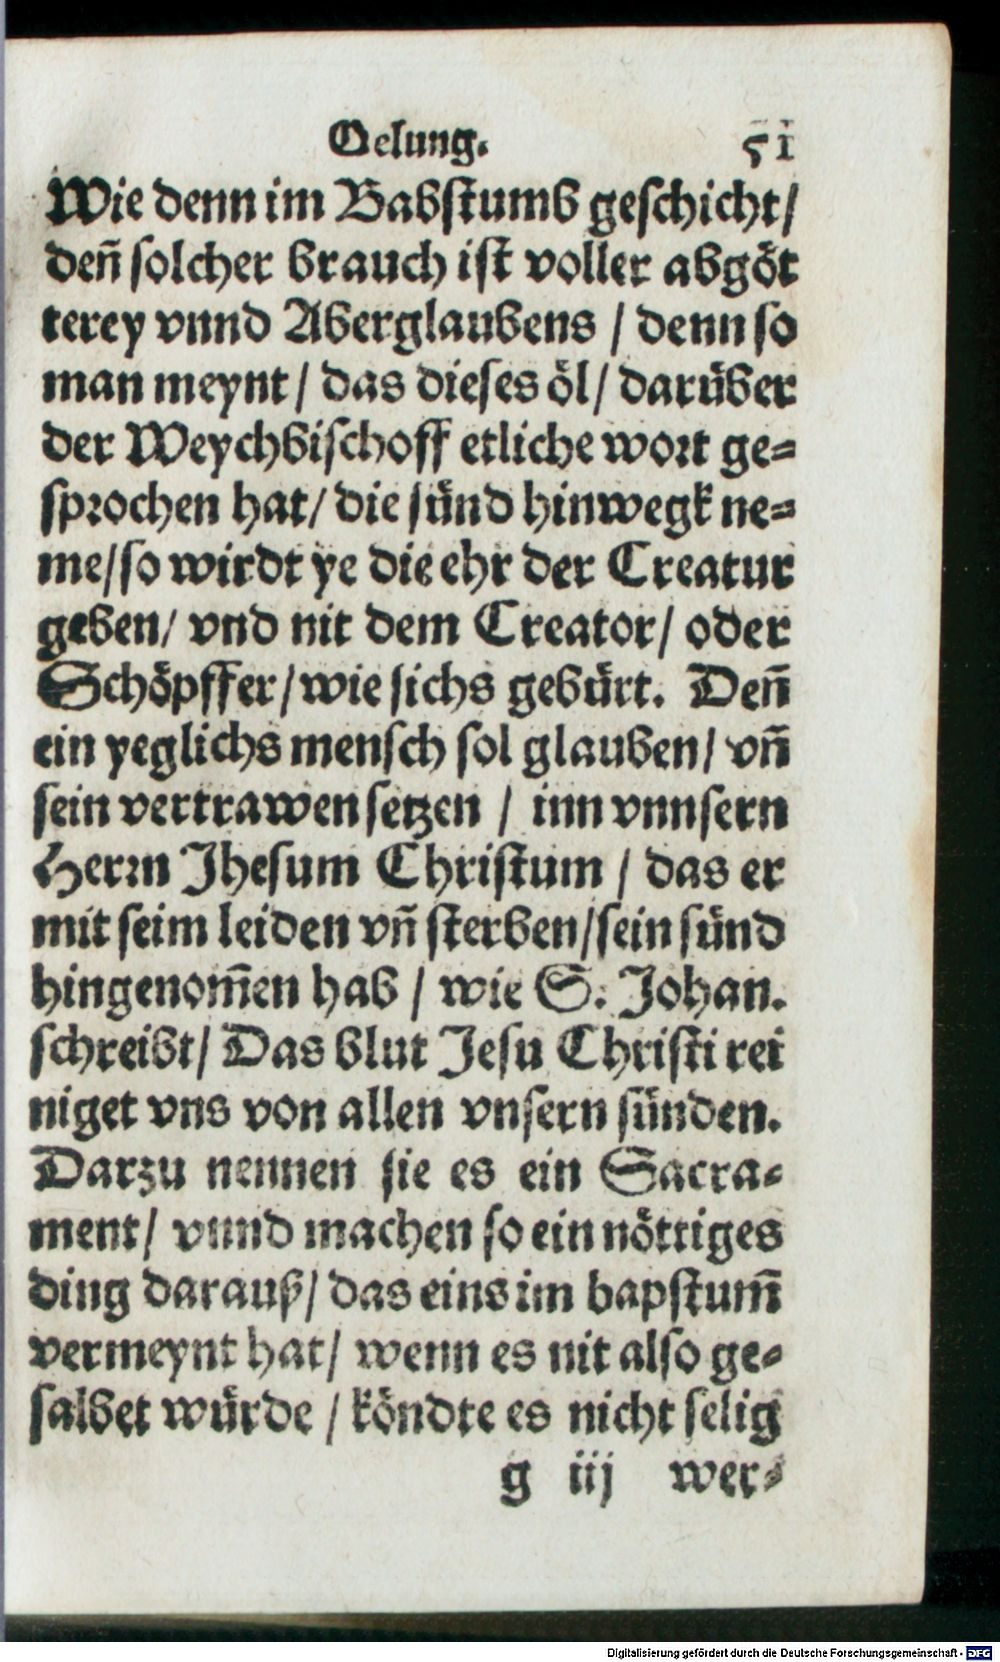 Oelung. 51
Wie denn im Babstumb geschicht/
deñ solcher brauch ist voller abgöt
terey vnnd Aberglaubens / denn so
man meynt / das dieses öl / darüber
der Weychbischoff etliche wort ge-
sprochen hat / die sünd hinwegk ne-
me / so wirdt ye die ehr der Creatur
geben / vnd nit dem Creator / oder
Schöpffer / wie sichs gebürt. Deñ
ein yeglichs mensch sol glauben / vñ
sein vertrawen setzen / inn vnnsern
Herrn Jhesum Christum / das er
mit seim leiden vñ sterben / sein sünd
hingenom̃en hab / wie S. Johan.
schreibt / Das blut Jesu Christi rei
niget vns von allen vnsern sünden.
Darzu nennen sie es ein Sacra-
ment / vnnd machen so ein nöttiges
ding darauß / das eins im bapstum̃
vermeynt hat / wenn es nit also ge-
salbet würde / köndte es nicht selig
g iij wer-
Digitalisierung gefördert durch die Deutsche Forschungsgemeinschaft - DFG